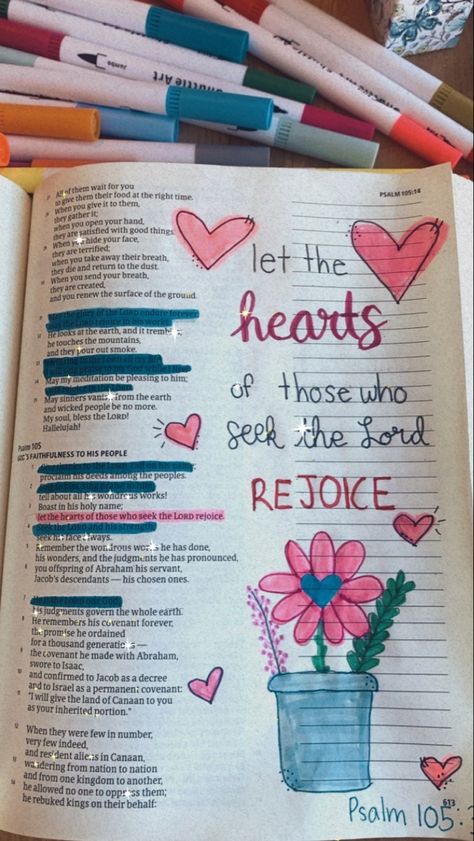 Jumbo
PSALM 105:14
27 All of them wait for you
to give them their food at the right time.
28 When you give it to them,
they gather it;
when you open your hand,
they are satisfied with good things.
29 When you hide your face,
they are terrified;
when you take away their breath,
they die and return to the dust.
30 When you send your breath,
they are created,
and you renew the surface of the ground.
31 May the glory of the LORD endure forever;
may the LORD rejoice in his works.
32 He looks at the earth, and it trembles;
he touches the mountains,
and they pour out smoke.
34 May my meditation be pleasing to him;
35 May sinners vanish from the earth
and wicked people be no more.
My soul, bless the LORD!
Hallelujah!
Psalm 105
GOD'S FAITHFULNESS TO HIS PEOPLE
proclaim his deeds among the peoples.
tell about all his wondrous works!
3 Boast in his holy name;
let the hearts of those who seek the LORD rejoice.
4 Seek the LORD and his strength;
seek his face always.
5 Remember the wondrous works he has done,
his wonders, and the judgments he has pronounced,
6 you offspring of Abraham his servant,
Jacob's descendants — his chosen ones.
7 He is the LORD our God;
his judgments govern the whole earth.
8 He remembers his covenant forever,
the promise he ordained
for a thousand generations —
9 the covenant he made with Abraham,
swore to Isaac,
10 and confirmed to Jacob as a decree
and to Israel as a permanent covenant:
11 "I will give the land of Canaan to you
as your inherited portion."
12 When they were few in number,
very few indeed,
and resident aliens in Canaan,
13 wandering from nation to nation
and from one kingdom to another,
14 he allowed no one to oppress them;
he rebuked kings on their behalf:
let the
hearts
of those who
seek the Lord
REJOICE
613
Psalm 105: